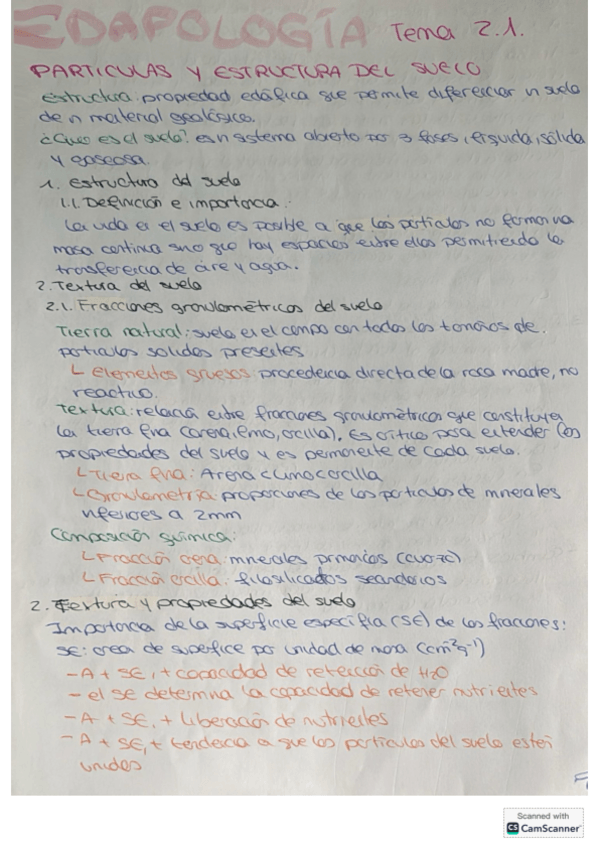 EDAPOLOGÍA Tema 2.1.
PARTICULAS Y ESTRUCTURA DEL SUELO
estructura: propiedad edáfica que permite diferenciar un suelo
de un material geológico.
¿Que es el suelo? es un sistema abierto por 3 fases, líquida, sólida
y gaseosa.
1. estructura del suelo
1.1. Definición e importancia.
La vida en el suelo es posible a que las particulas no forman una
masa continua sino que hay espacios entre ellas permitiendo la
transferencia de aire y agua.
2. Textura del suelo
2.1. Fracciones granulométricas del suelo
Tierra natural: suelo en el campo con todos los tamaños de
particulas solidas presentes
└ elementos gruesos: procedencia directa de la roca madre, no
reactivo.
Textura: relación entre fracciones granulométricas que constituyen
la tierra fina (arena, limo, arcilla). Es critico para entender las
propiedades del suelo y es permanente de cada suelo.
└ Tierra fina: Arena limo arcilla
└ Granulometría: proporciones de las particulas de minerales
inferiores a 2mm
Composición química:
└ Fracción arena: minerales primarios (cuarzo)
└ Fracción arcilla: filosilicatos secundarios
2. Textura y propiedades del suelo
Importancia de la superficie especifica (SE) de las fracciones:
SE: area de superficie por unidad de masa (cm²g⁻¹)
- A + SE, + capacidad de retención de H₂O
- el SE determina la capacidad de retener nutrientes
- A + SE, + liberación de nutrientes
- A + SE, + tendencia a que las particulas del suelo esten
unidas
Scanned with
CS CamScanner